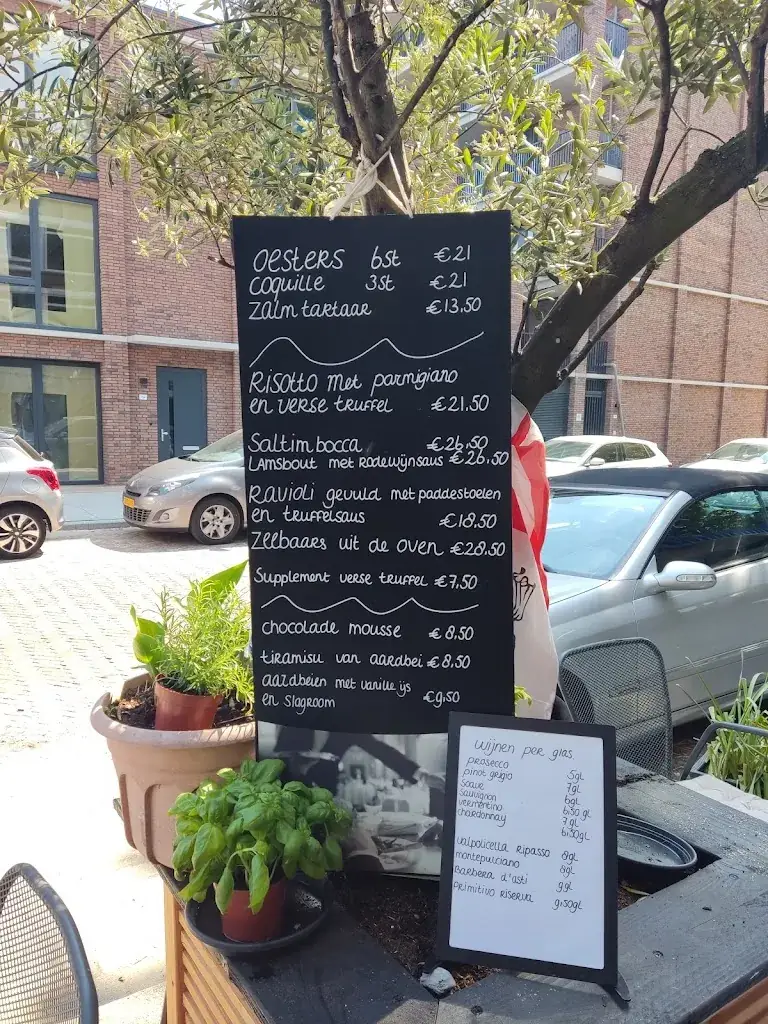 Oesters 6st €21
Coquille 3st €21
Zalm tartaar €13,50
Risotto met parmigiano
en verse truffel €21,50
Saltim bocca €26,50
Lamsbout met Rodewijnsaus €26,50
Ravioli gevuld met paddestoelen
en truffelsaus €18,50
Zeebaars uit de oven €28,50
Supplement verse truffel €7,50
chocolade mousse €8,50
tiramisu van aardbei €8,50
aardbeien met vanille ijs
en slagroom €9,50
Wijnen per glas
prosecco 5gl
pinot grigio 7gl
Soave 6gl
Sauvignon 6,50 gl
vermentino 7 gl
chardonnay 6,50gl
valpolicella ripasso 8gl
montepulciano 8gl
Barbera d'asti 9gl
Primitivo riserva 9,50gl